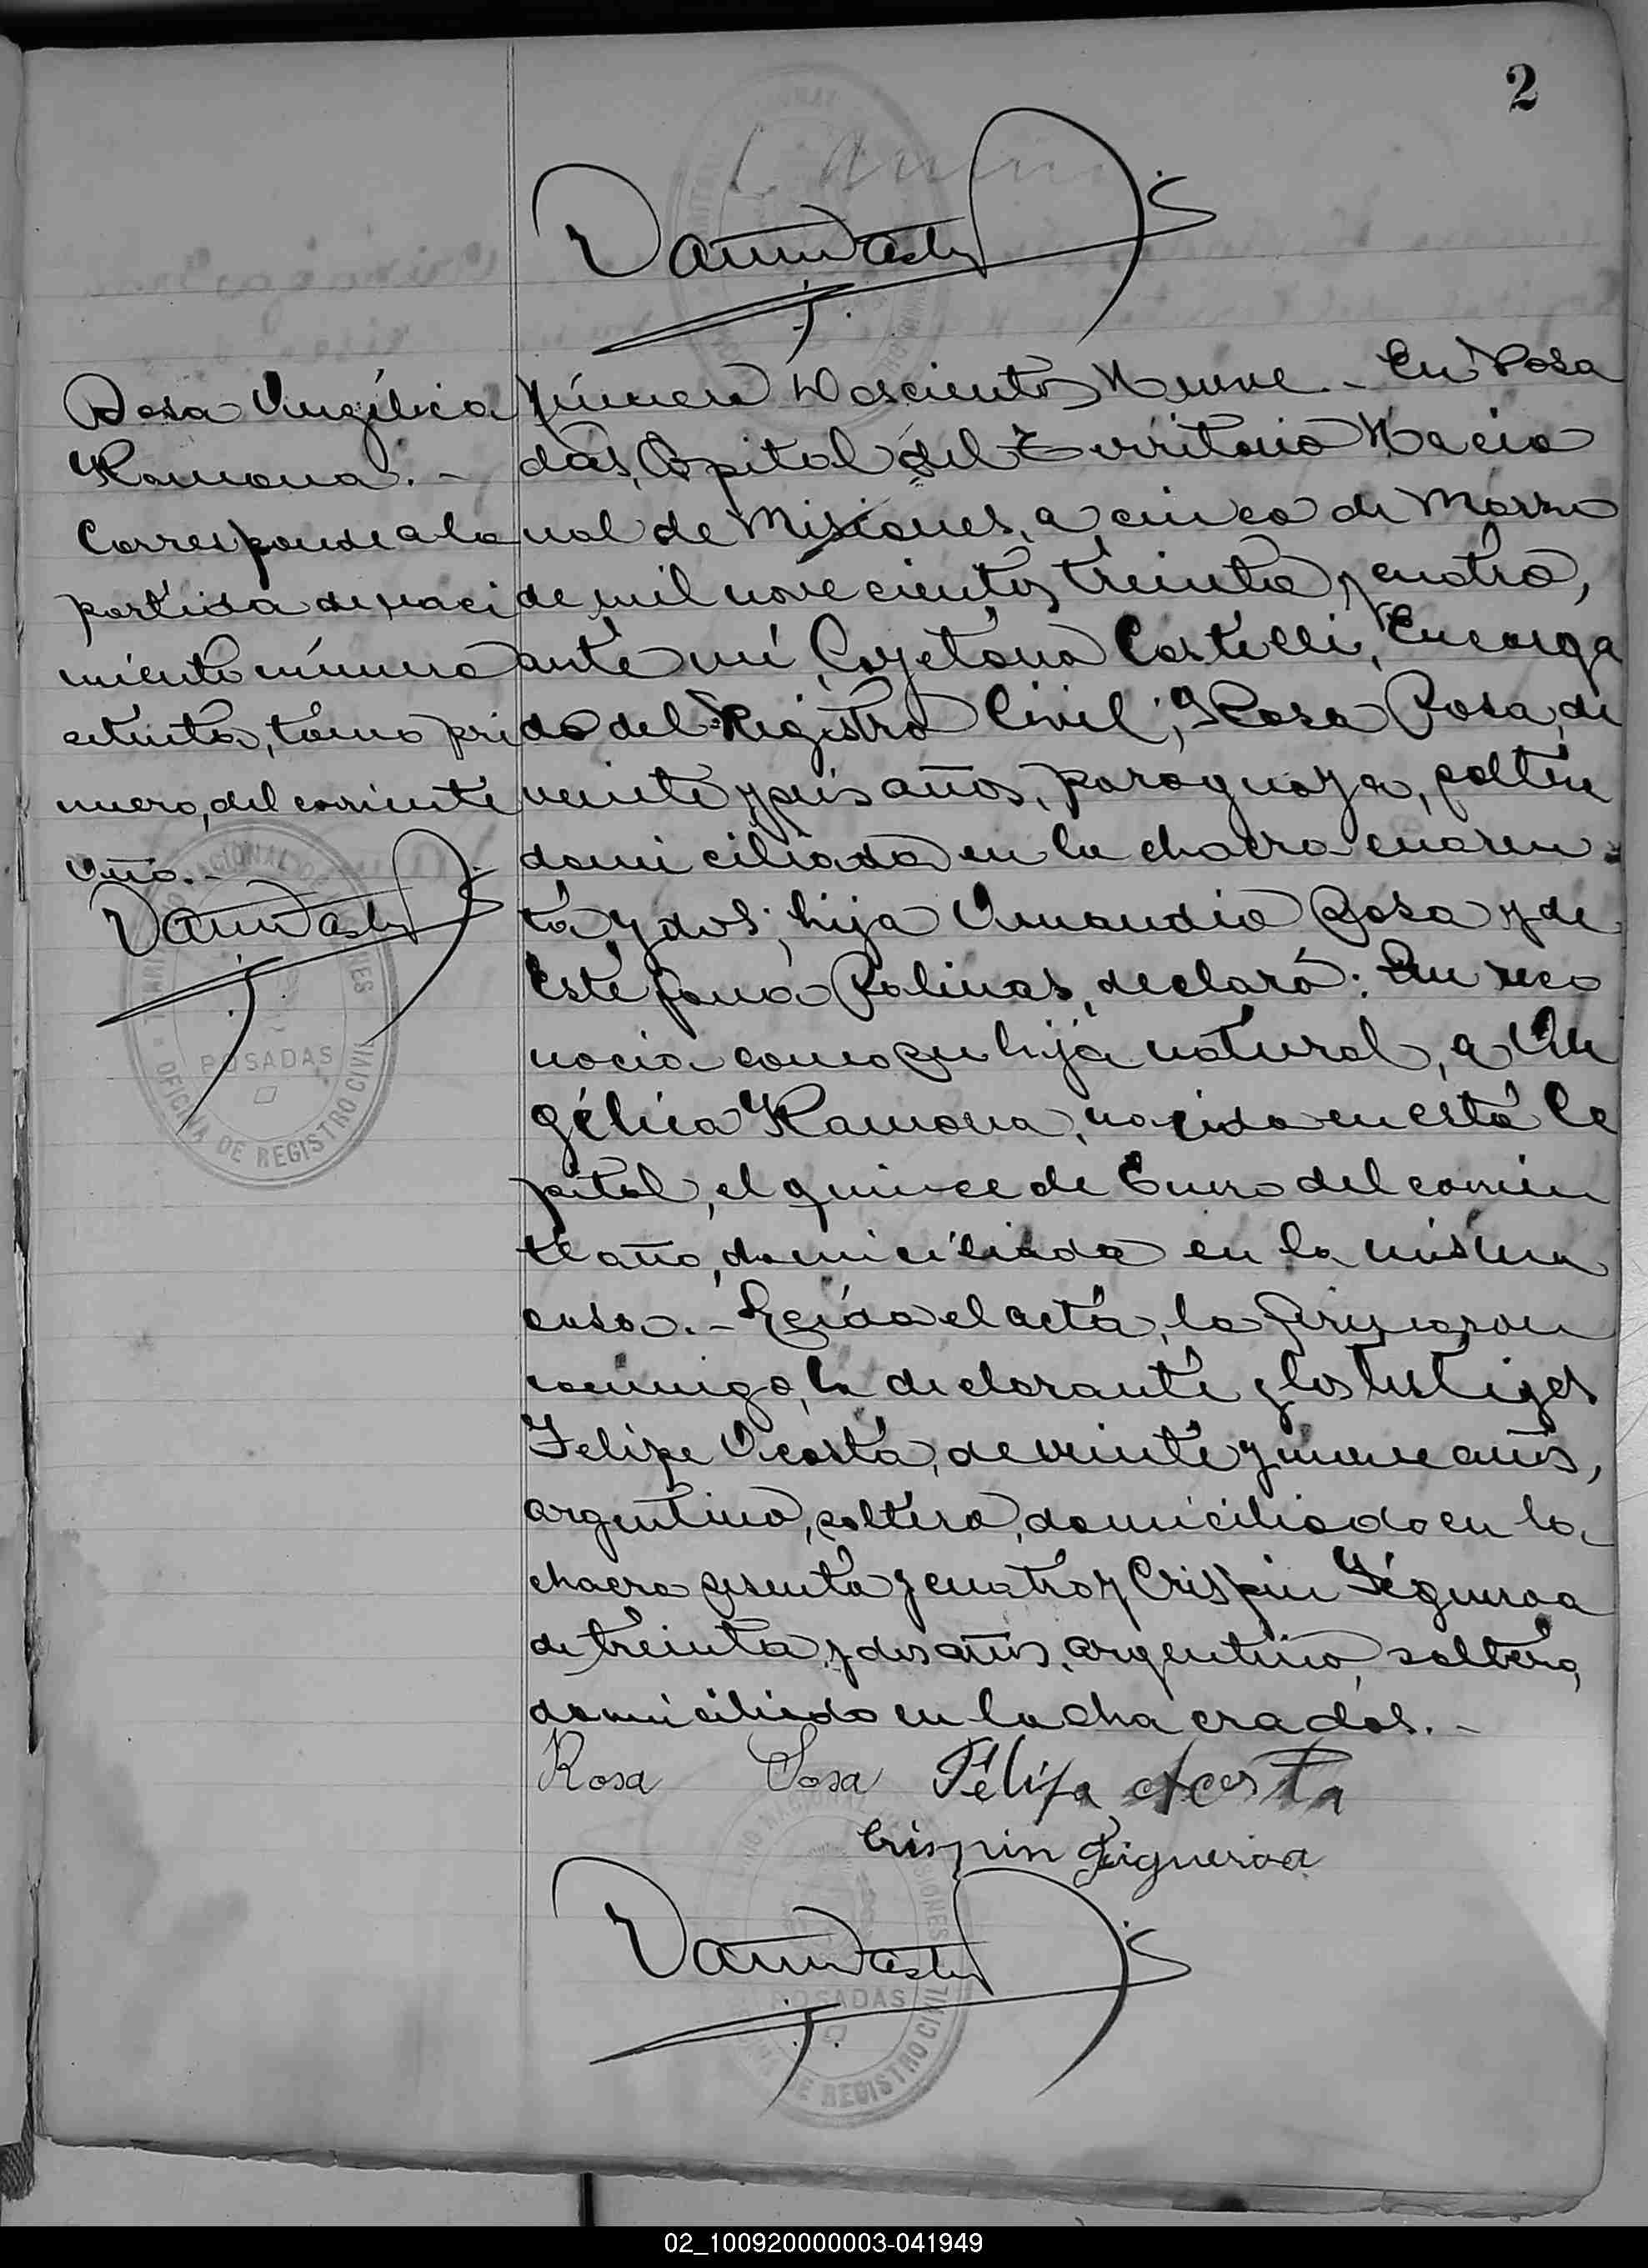 2
Sosa Angélica
Ramona.-
Corresponde a la
partida de naci
miento número
setenta, tomo pri
mero, del corriente
año.-
TERRITORIO NACIONAL DE MISIONES
POSADAS
OFICINA DE REGISTRO CIVIL
Número Doscientos Nueve.- En Posa
das, Capital del Territorio Nacio
nal de Misiones, a cinco de Marzo
de mil novecientos treinta y cuatro,
ante mí, Cayetano Castelli, Encarga
do del Registro Civil; Rosa Sosa, de
veinte y seis años, paraguaya, soltera
domiciliada en la chacra cuaren
ta y dos; hija Amandio Sosa y de
Estefana Salinas, declaró: Que reco
nocía como su hija natural, a An
gélica Ramona, nacida en esta Ca
pital, el quince de Enero del corrien
te año, domiciliada en la misma
casa.- Leída el acta, la firmaron
conmigo, la declarante y los testigos
Felipe Acosta, de veinte y nueve años,
argentino, soltero, domiciliado en la
chacra sesenta y cuatro y Crispin Figueroa
de treinta y dos años, argentino, soltero,
domiciliado en la chacra dos.-
Rosa Sosa Felipa Acosta
Crispin Figueroa
POSADAS
REGISTRO CIVIL
02_100920000003-041949